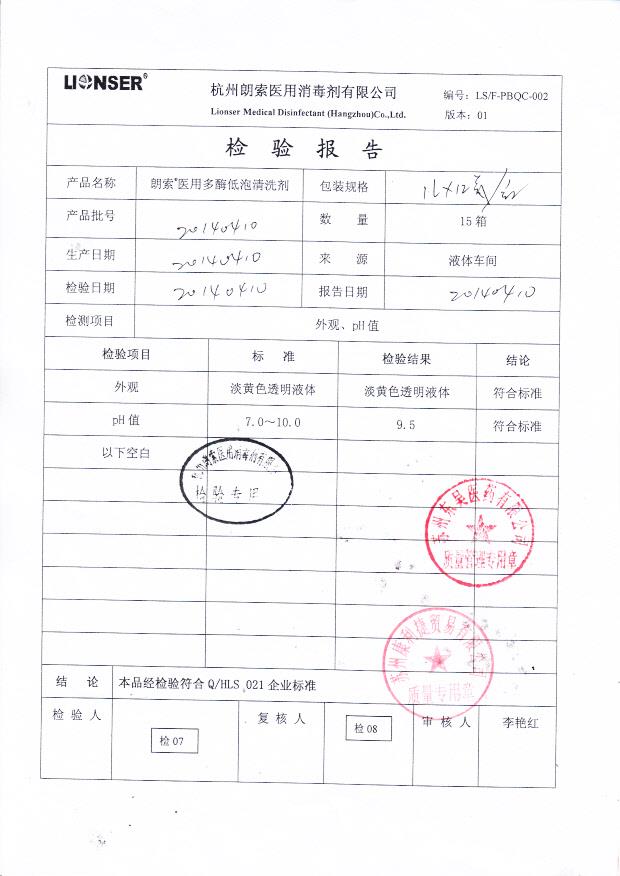 LIONSER®
杭州朗索医用消毒剂有限公司
Lionser Medical Disinfectant (Hangzhou)Co.,Ltd.
编号: LS/F-PBQC-002
版本: 01
检验报告
产品名称 朗索®医用多酶低泡清洗剂 包装规格 1L×12瓶/箱
产品批号 20140410 数 量 15箱
生产日期 20140410 来 源 液体车间
检验日期 20140410 报告日期 20140410
检测项目 外观、pH值
检验项目 标 准 检验结果 结论
外观 淡黄色透明液体 淡黄色透明液体 符合标准
pH值 7.0～10.0 9.5 符合标准
以下空白
检验专用
苏州东吴医药有限公司
质量管理专用章
苏州康利捷贸易有限公司
质量专用章
结 论 本品经检验符合Q/HLS 021企业标准
检验人 检07 复核人 检08 审核人 李艳红